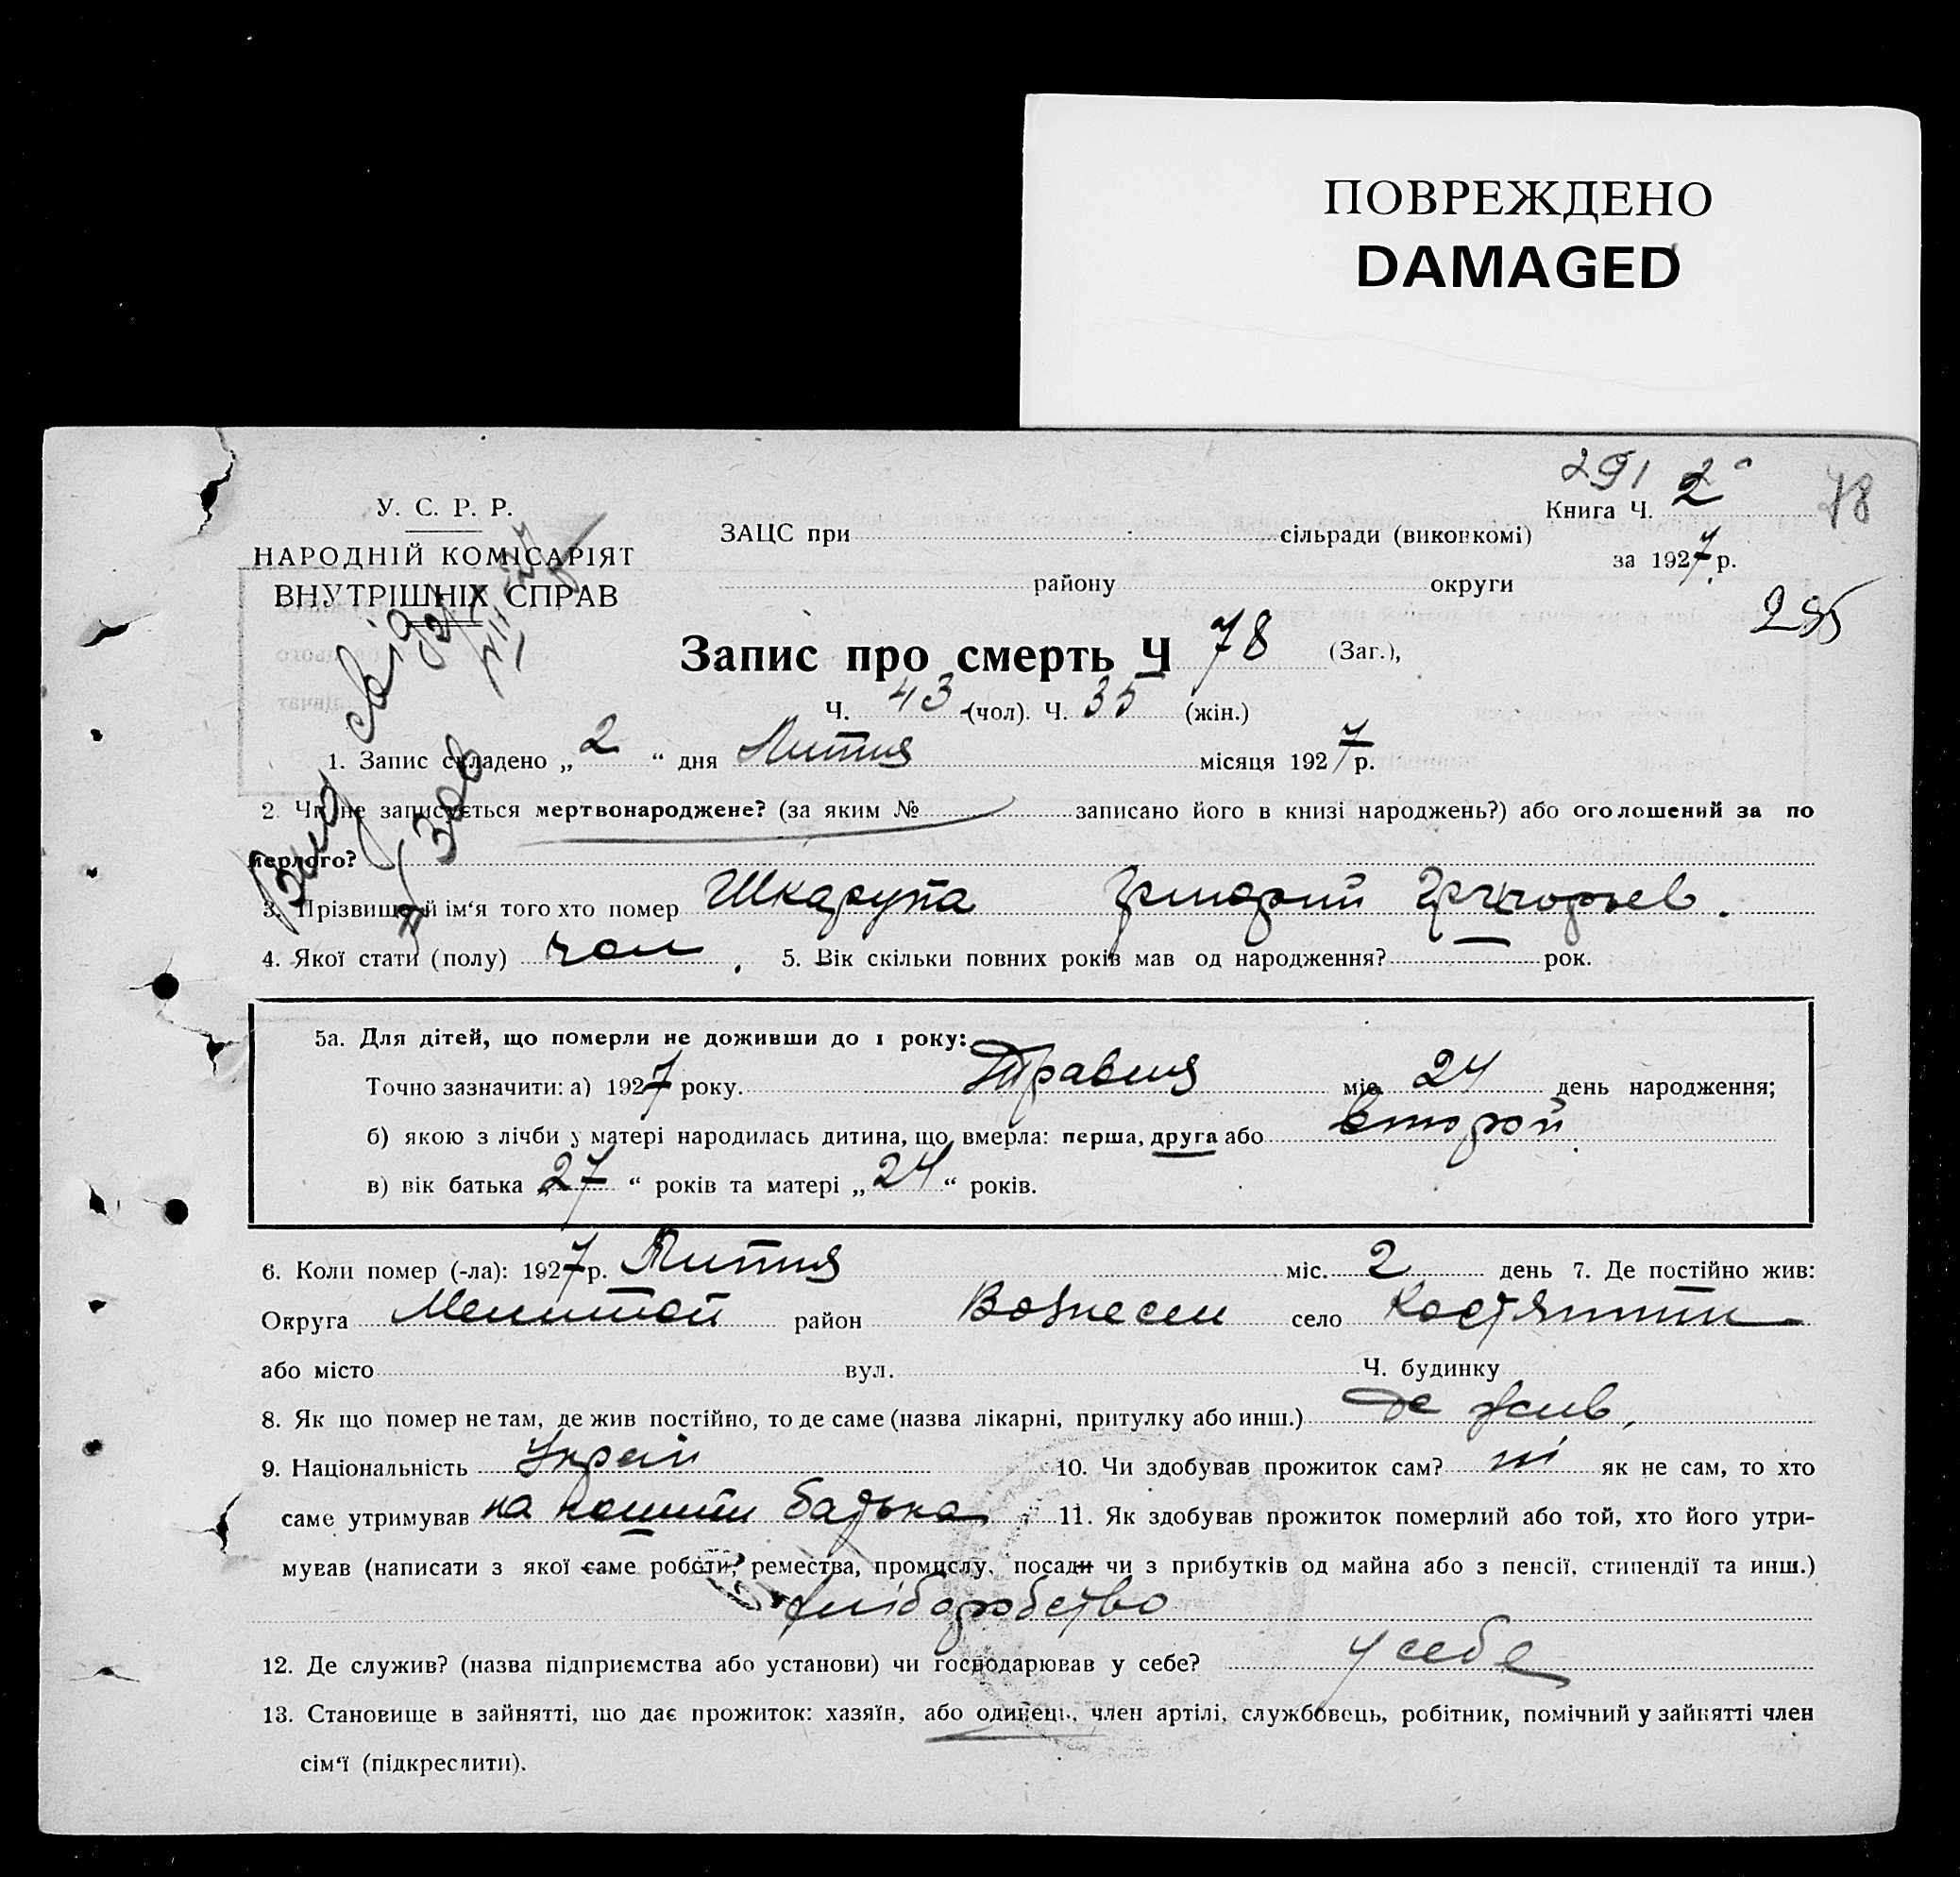 ПОВРЕЖДЕНО
DAMAGED
291 2
У. С. Р. Р.
НАРОДНІЙ КОМІСАРІЯТ
ВНУТРІШНІХ СПРАВ
ЗАЦС при сільради (виконкомі)
району округи
Книга Ч. 2
78
за 1927 р.
295
Запис про смерть Ч 78 (Заг.),
Ч. 43 (чол). Ч. 35 (жін.)
1. Запис складено „ 2 “ дня Липня місяця 1927 р.
2. Чи не записується мертвонароджене? (за яким № записано його в книзі народжень?) або оголошений за по
мерлого?
3. Прізвище й ім‘я того хто помер Шкарупа Григорий Григорьев.
4. Якої стати (полу) чол. 5. Вік скільки повних років мав од народження? — рок.
5а. Для дітей, що померли не доживши до 1 року:
Точно зазначити: а) 1927 року. Травня міс. 24 день народження;
б) якою з лічби у матері народилась дитина, що вмерла: перша, друга або второй
в) вік батька „ 27 “ років та матері „ 24 “ років.
6. Коли помер (-ла): 1927 р. Липня міс. 2 день 7. Де постійно жив:
Округа Мелитой район Вознесен село
або місто вул. Ч. будинку
8. Як що помер не там, де жив постійно, то де саме (назва лікарні, притулку або инш.) де жив,
9. Національність Украй 10. Чи здобував прожиток сам? ні як не сам, то хто
саме утримував на кошти батька 11. Як здобував прожиток померлий або той, хто його утри-
мував (написати з якої саме роботи, ремества, промислу, посади чи з прибутків од майна або з пенсії, стипендії та инш.)
хліборобство
12. Де служив? (назва підприємства або установи) чи господарював у себе? у себе
13. Становище в зайнятті, що дає прожиток: хазяїн, або одинець, член артілі, службовець, робітник, помічний у зайнятті член
сім‘ї (підкреслити).